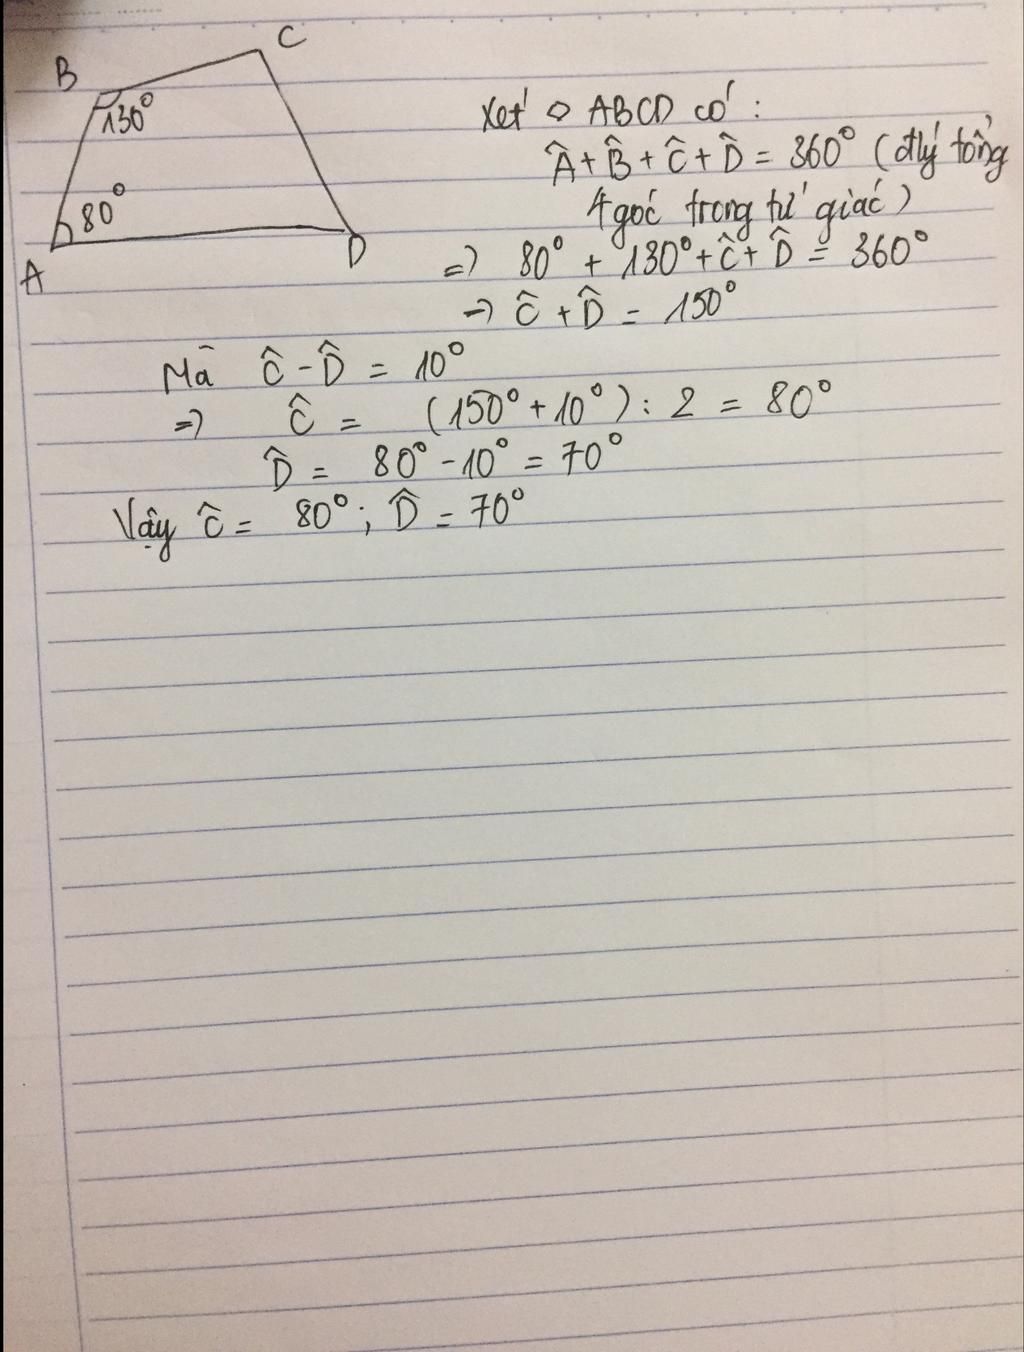 B
C
130°
80°
A
D
Xét ◇ ABCD có :
Â + B̂ + Ĉ + D̂ = 360° (đlý tổng
4 góc trong tứ giác)
=> 80° + 130° + Ĉ + D̂ = 360°
=> Ĉ + D̂ = 150°
Mà Ĉ - D̂ = 10°
=> Ĉ = (150° + 10°) : 2 = 80°
D̂ = 80° - 10° = 70°
Vậy Ĉ = 80° ; D̂ = 70°